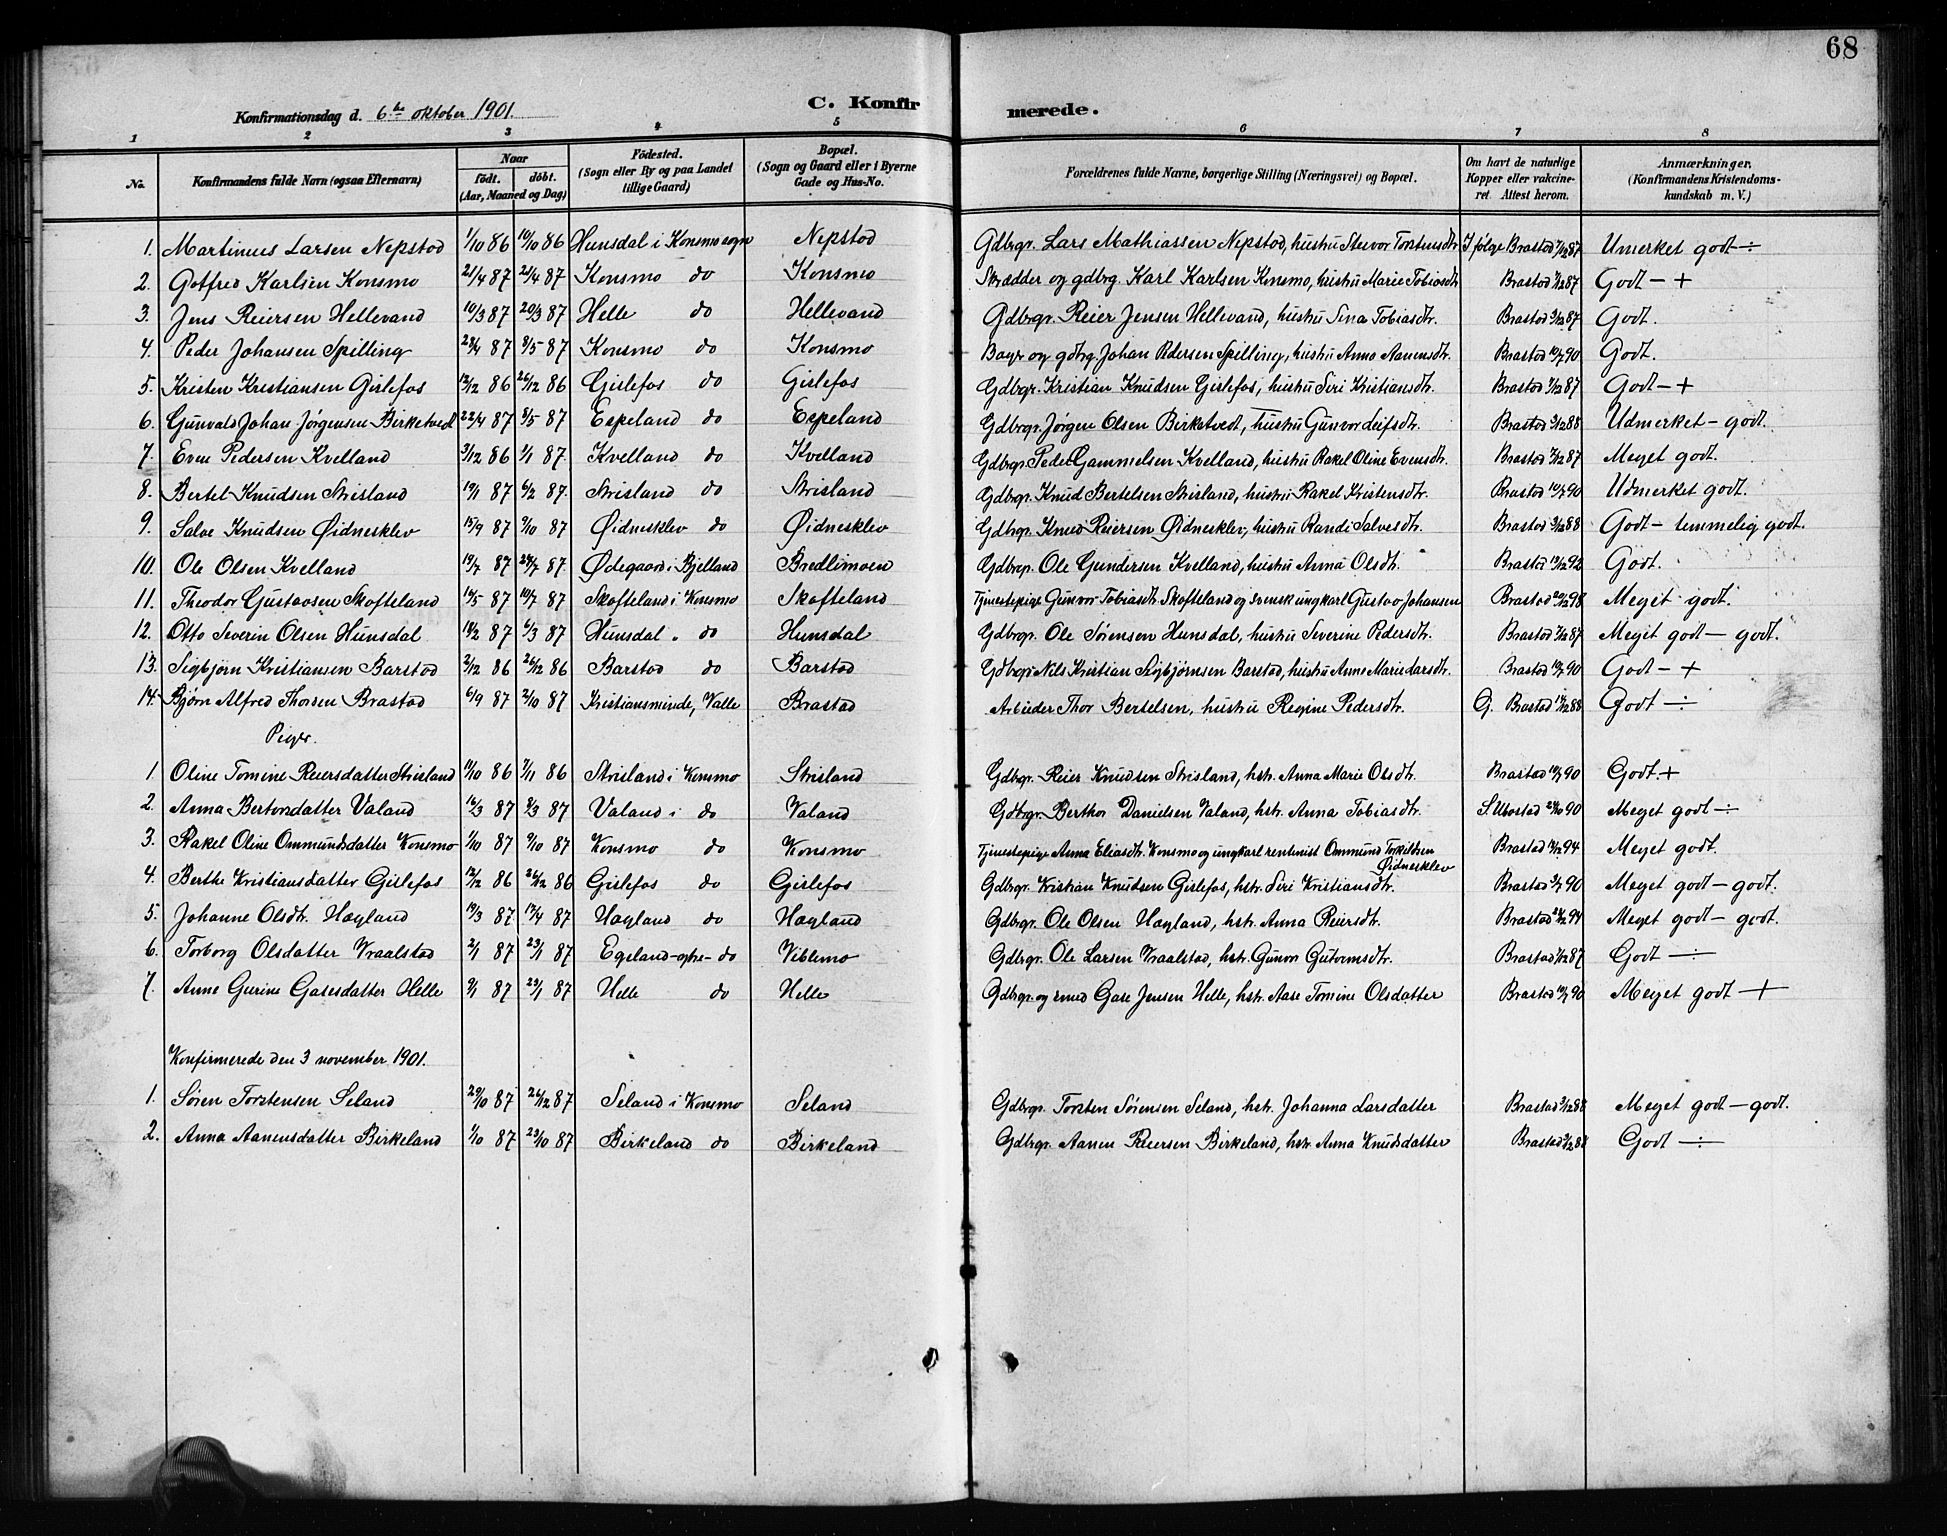 68
Konfirmationsdag d. 6te oktober 1901.
C. Konfirmerede.
1 2 3 4 5 6 7 8
No. Konfirmandens fulde Navn (ogsaa Efternavn) Naar født. døbt. (Aar, Maaned og Dag) Fødested. (Sogn eller By og paa Landet tillige Gaard) Bopæl. (Sogn og Gaard eller i Byerne Gade og Hus-No. Forældrenes fulde Navne, borgerlige Stilling (Næringsvei) og Bopæl. Om havt de naturlige Kopper eller vakcineret. Attest herom. Anmærkninger. (Konfirmandens Kristendomskundskab m. V.)
1. Martinus Larsen Nepstad 1/10 86 10/10 86 Hunsdal i Konsmo sogn Nepstad Gdbrgr. Lars Mathiassen Nepstad, hustru Torstensdtr. Ifølge Brastad 7/12 87 Umerket godt ÷
2. Gotfred Karlsen Konsmo 21/4 87 21/4 87 Konsmo do Konsmo Skrædder og gdbrg. Karl Karlsen Konsmo, hustru Marie Tobiasdtr Brastad 7/12 87 Godt — +
3. Jens Reiersen Hellevand 10/3 87 20/3 87 Helle do Hellevand Gdbrgr. Reier Jensen Hellevand, hustru Sina Tobiasdtr. Brastad 9/12 87 Godt.
4. Peder Johansen Spilling 28/4 87 8/5 87 Konsmo do Konsmo og gdbrg. Johan Pedersen Spilling, hustru Anna Aanensdtr. Brastad 10/7 90 Godt.
5. Kristen Kristiansen Gislefos 12/12 86 26/12 86 Gislefos do Gislefos Gdbrgr. Kristian Knudsen Gislefos, hustru Siri Kristiansdtr. Brastad 7/12 87 Godt — +
6. Gunvald Johan Jørgensen Birketvedt 22/4 87 8/5 87 Espeland do Espeland Gdbrgr. Jørgen Olsen Birketvedt, hustru Gunvor Leifsdtr. Brastad 3/12 88 Udmerket — godt.
7. Even Pedersen Kvelland 3/12 86 1/1 87. Kvelland do Kvelland Gdbrgr. Peder Gammelsen Kvelland, hustru Rakel Oline Evensdtr. Brastad 7/12 87 Meget godt.
8. Bertel Knudsen Strisland 19/1 87 6/2 87. Strisland do Strisland Gdbrgr. Knud Bertelsen Strisland, hustru Rakel Kristensdtr. Brastad 10/7 90 Udmerket godt.
9. Salve Knudsen Øidnesklev 15/9 87 9/10 87 Øidnesklev do Øidnesklev Gdbrgr. Knud Reiersen Øidnesklev, hustru Randi Salvesdtr. Brastad 3/12 88 Godt — temmelig godt.
10. Ole Olsen Kvelland 19/7 87 24/7 87. Ødegaard i Bjelland Bredlimoen Gdbrgr. Ole Gundersen Kvelland, hustru Anna Olsdtr. Brastad 12/12 92 Godt.
11. Theodor Gustavsen Skofteland 16/5 87 10/7 87 Skofteland i Konsmo Skofteland Tjenestepige Gunvor Tobiasdtr Skofteland og svensk ungkarl Gustav Johansen Brastad 20/12 98 Meget godt.
12. Otto Severin Olsen Hunsdal 18/2 87 6/3 87 Hunsdal " do Hunsdal Gdbrgr. Ole Sørensen Hunsdal, hustru Severine Pedersdtr. Brastad 7/12 87 Meget godt — godt.
13. Sigbjørn Kristiansen Barstad 2/12 86 26/12 86 Barstad do Barstad Gdbrgr. Nils Kristian Sigbjørnsen Barstad, hustru Anne Marie Larsdtr. Brastad 10/7 90 Godt — +
14. Bjørn Alfred Thorsen Brastad 6/9 87 2/10 87 Kristiansminde, Valle Brastad Arbeider Thor Bertelsen, hustru Regine Pedersdtr. G. Brastad 14/12 88 Godt — ÷
Piger.
1. Oline Tomine Reiersdatter Strisland 14/10 86 7/11 86 Strisland i Konsmo Strisland Gdbrgr. Reier Knudsen Strisland, hstr. Anna Marie Olsdtr. Brastad 10/7 90 Godt +
2. Anna Bertorsdatter Valand 16/3 87 9/3 87 Valand i do Valand Gdbrgr. Berthor Danielsen Valand, hstr. Anna Tobiasdtr. 24/10 90 Meget godt ÷
3. Rakel Oline Ommundsdatter Konsmo 1/10 87 9/10 87 Konsmo do Konsmo Tjenestepige Anna Eliasdtr. Konsmo og ungkarl rentenist Ommund Torkildsen Øidnesklev Brastad 12/12 94 Meget godt.
4. Berthe Kristiansdatter Gislefos 12/12 86 26/12 86 Gislefos do Gislefos Gdbrgr. Kristian Knudsen Gislefos, hstr. Siri Kristiansdtr. Brastad 3/7 90 Meget godt — godt.
5. Johanne Olsdtr. Høyland 19/3 87 17/4 87 Høyland do Høyland Gdbrgr. Ole Olsen Høyland, hstr. Anna Reiersdtr. Brastad 28/12 94 Meget godt — godt.
6. Torborg Olsdatter Vraalstad 2/1 87 23/1 87 Egeland-øfre- do Viblemo Gdbrgr. Ole Larsen Vraalstad, hstr. Gunvor Gutormsdtr. Brastad 7/12 87 Godt — ÷
7. Anne Gurine Gasesdatter Helle 9/1 87 23/1 87 Helle do Helle Gdbrgr. og smed Gase Jensen Helle, hstr. Aase Tomine Olsdatter Brastad 10/7 90 Meget godt — +
Konfirmerede den 3 november 1901.
1. Søren Torstensen Seland 29/10 87 26/12 87 Seland i Konsmo Seland Gdbrgr. Torsten Sørensen Seland, hstr. Johanna Larsdatter Brastad 3/12 88 Meget godt — godt.
2. Anna Aanensdatter Birkeland 1/10 87 23/10 87 Birkeland do Birkeland Gdbrgr. Aanen Reiersen Birkeland, hstr. Anna Knudsdatter Brastad 3/12 88 Godt — ÷